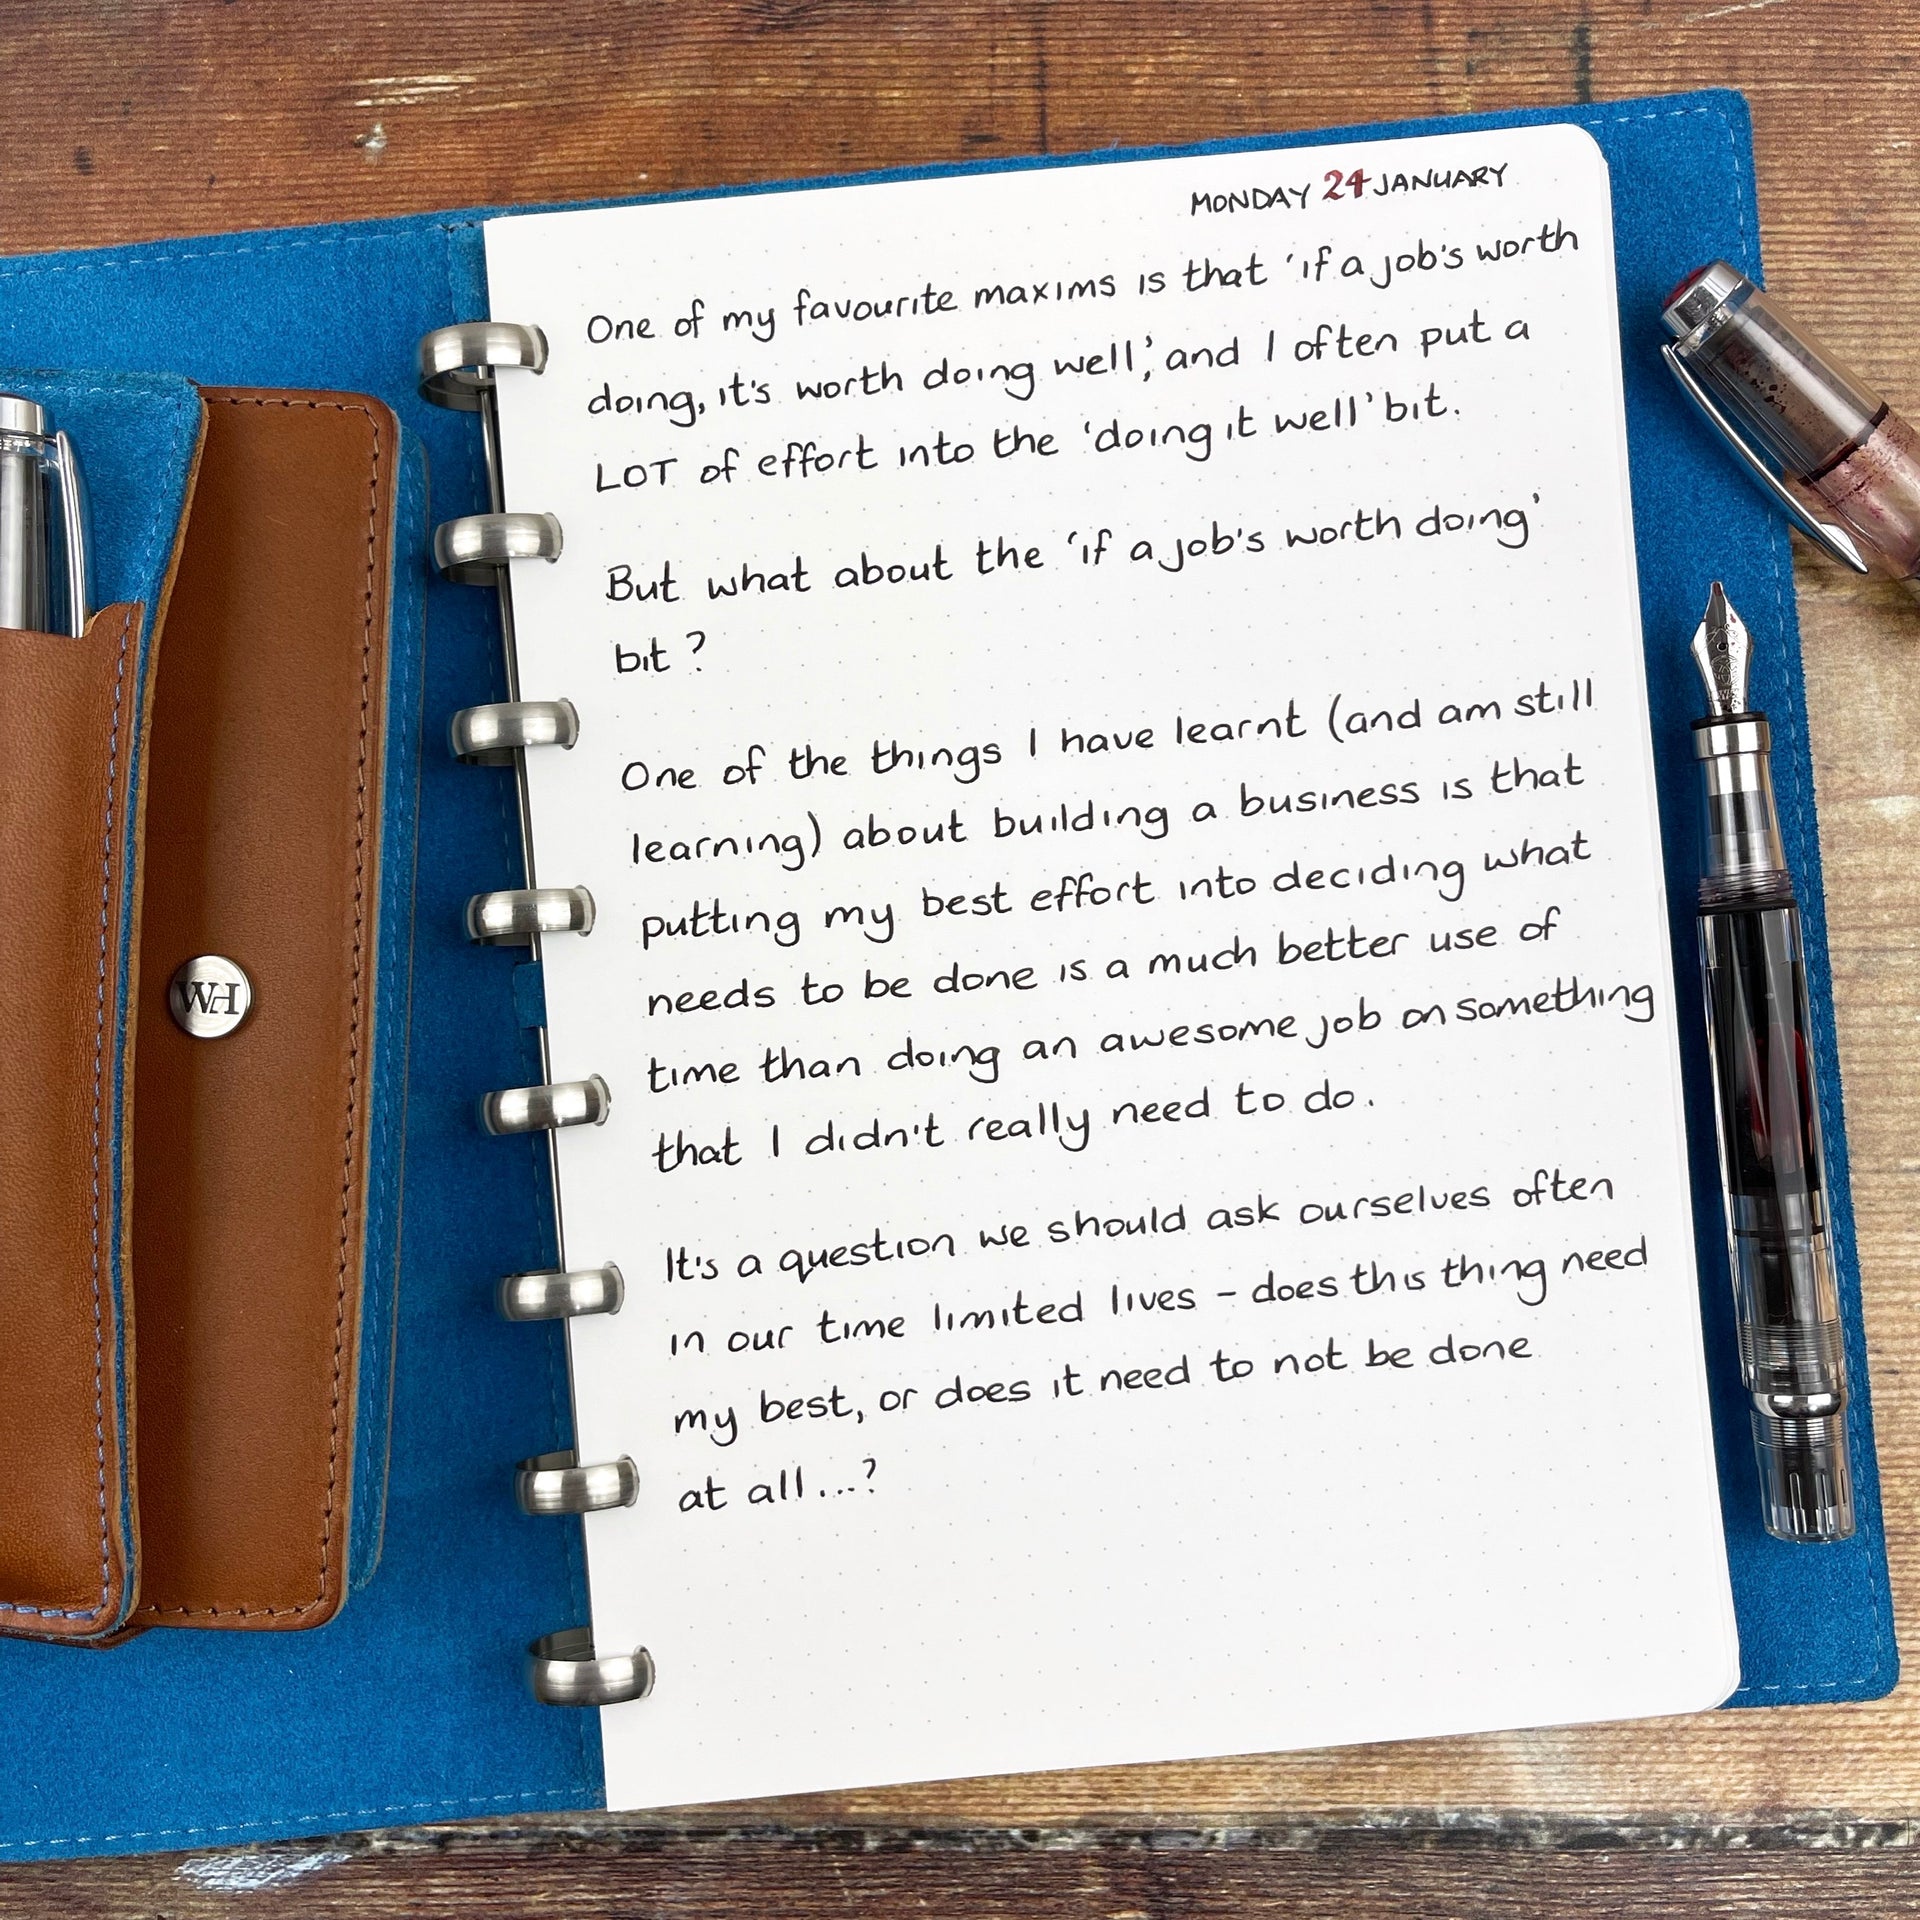 MONDAY 24 JANUARY
One of my favourite maxims is that 'if a job's worth
doing, it's worth doing well', and I often put a
LOT of effort into the 'doing it well' bit.
But what about the 'if a job's worth doing'
bit?
One of the things I have learnt (and am still
learning) about building a business is that
putting my best effort into deciding what
needs to be done is a much better use of
time than doing an awesome job on something
that I didn't really need to do.
It's a question we should ask ourselves often
in our time limited lives - does this thing need
my best, or does it need to not be done
at all...?
WH